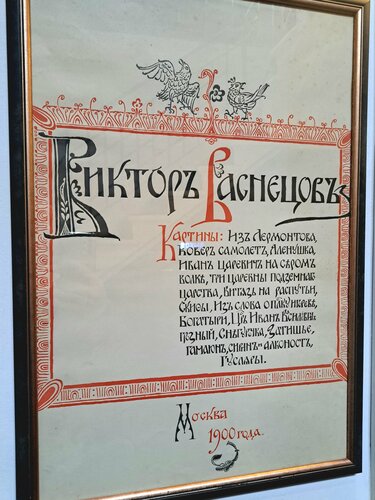 Викторъ Васнецовъ
Картины: Изъ Лермонтова,
Коверъ самолетъ, Аленушка,
Иванъ царевичъ на сѣромъ
волкѣ, три царевны подземнаг
царства, Витязь на распутьи,
Скиѳы, Изъ слова о полку игоревѣ,
Богатыри, Ц҃рь Иванъ Василіевичъ
Грозный, Снѣгурка, Затишье,
Гамаюнъ, сиринъ и алконостъ,
Гусляры.
Москва
1900 года.